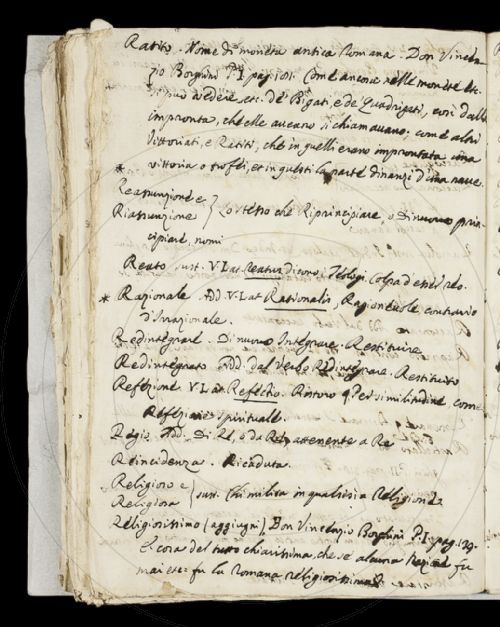 Ratito. Nome di moneta antica Romana. Don Vincen-
zio Borghini P.I. pag. Come ancora nelle monete etc.
si può vedere, etc. de' Bigati, e de Quadrigati, così dalla
impronta, che elle aveano si chiamavano; come altri
Vittoriati, e Ratiti, che in quelli erano improntata una
vittoria o trofei, et in questi la parte dinanzi d'una nave.
*
Reassunzione e
Riassunzione } Lo stesso che Riprincipiare, o Di nuovo prin-
cipiare, nomi
Reato sust. V. Lat. Reatus dicono i Teologi. Colpa d'esser reo.
* Razionale. Add. V. Lat. Rationalis, Ragionevole contrario
d'Irrazionale.
Redintegrare. Di nuovo Integrare. Restituire
Redintegrato Add. dal Verbo Redintegrare. Restituito
Refezione V. Lat. Refectio. Ristoro Per similitudine come
Refezione spirituale.
Regio. Add. Di Re, o da Re, attenente a Re
Reincidenza. Ricaduta.
Religioso e
Religiosa } sust. Chi milita in qualsisia Religione
Religiosissimo (aggiugni) Don Vincenzio Borghini P.I. pag. 129.
E cosa del tutto chiarissima, che se alcuna Nazione fu
mai etc. fu la Romana religiosissima